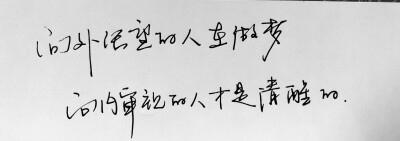 向外张望的人在做梦
向内审视的人才是清醒的.